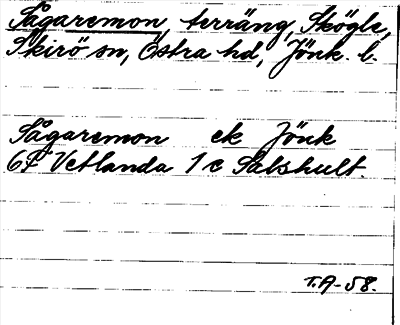 Sågaremon, terräng, Skögle,
Skirö sn, Östra hd, Jönk. l.
Sågaremon ek Jönk
6F Vetlanda 1 c Salshult.
T.A-58.